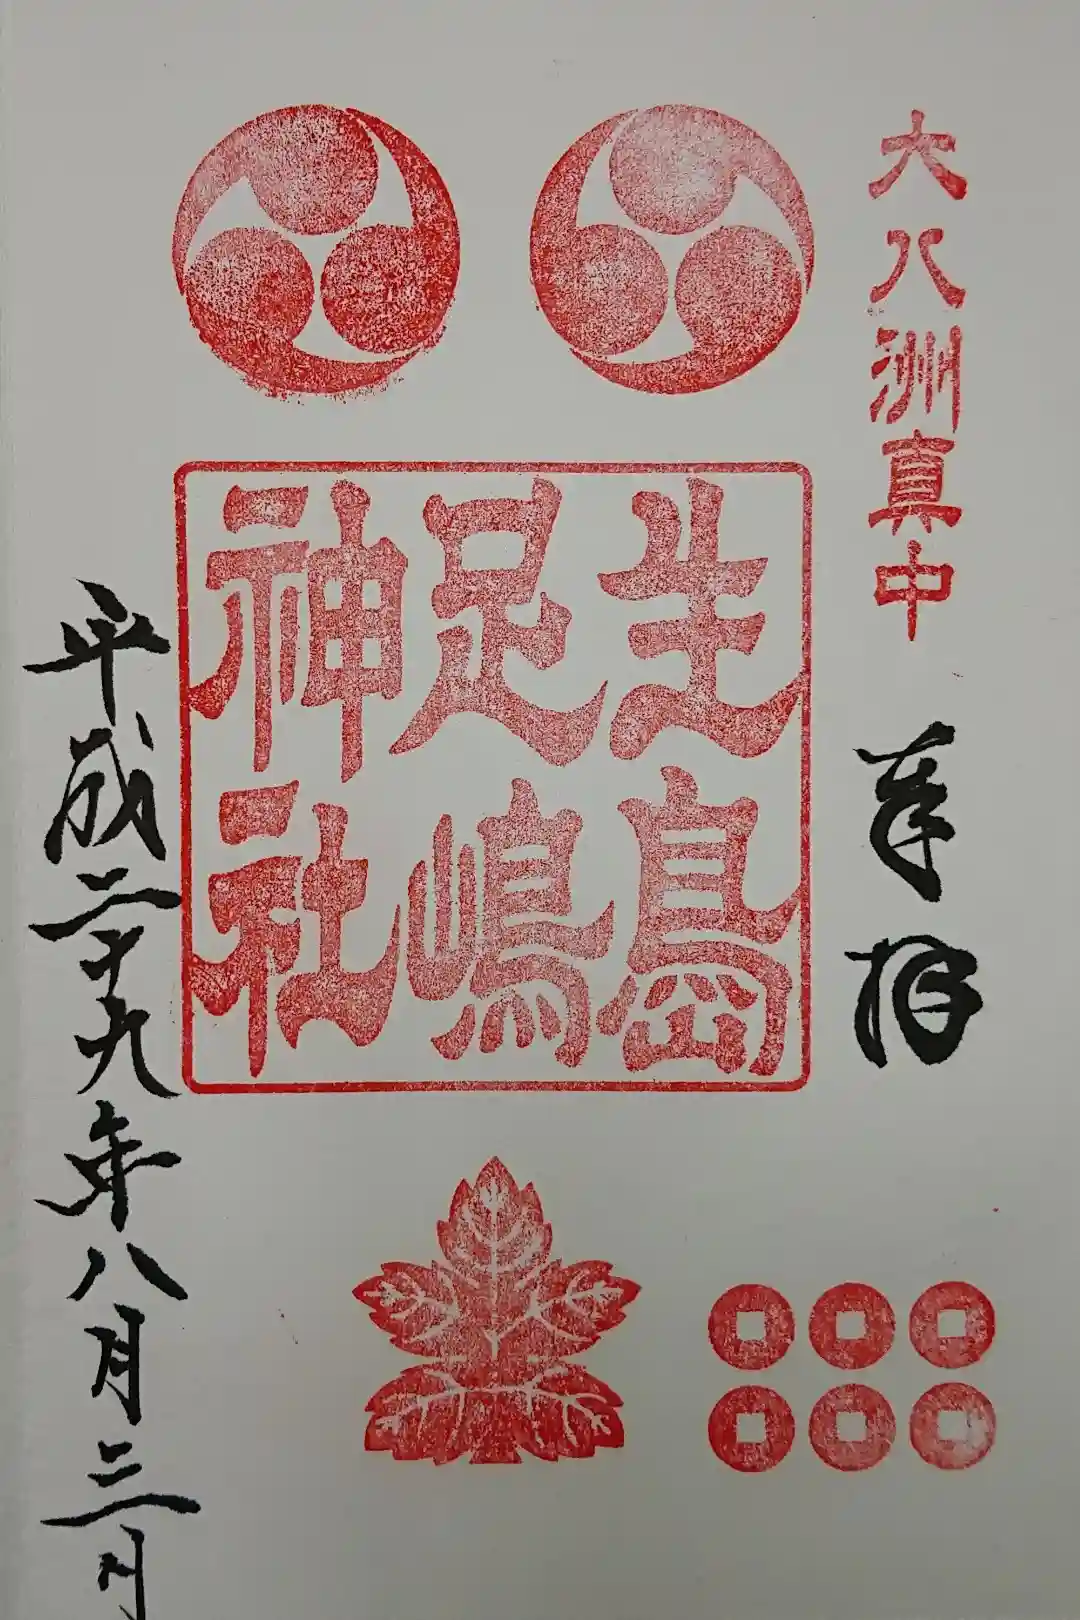 大八洲真中
奉拝
生島
足嶋
神社
平成二十九年八月三日